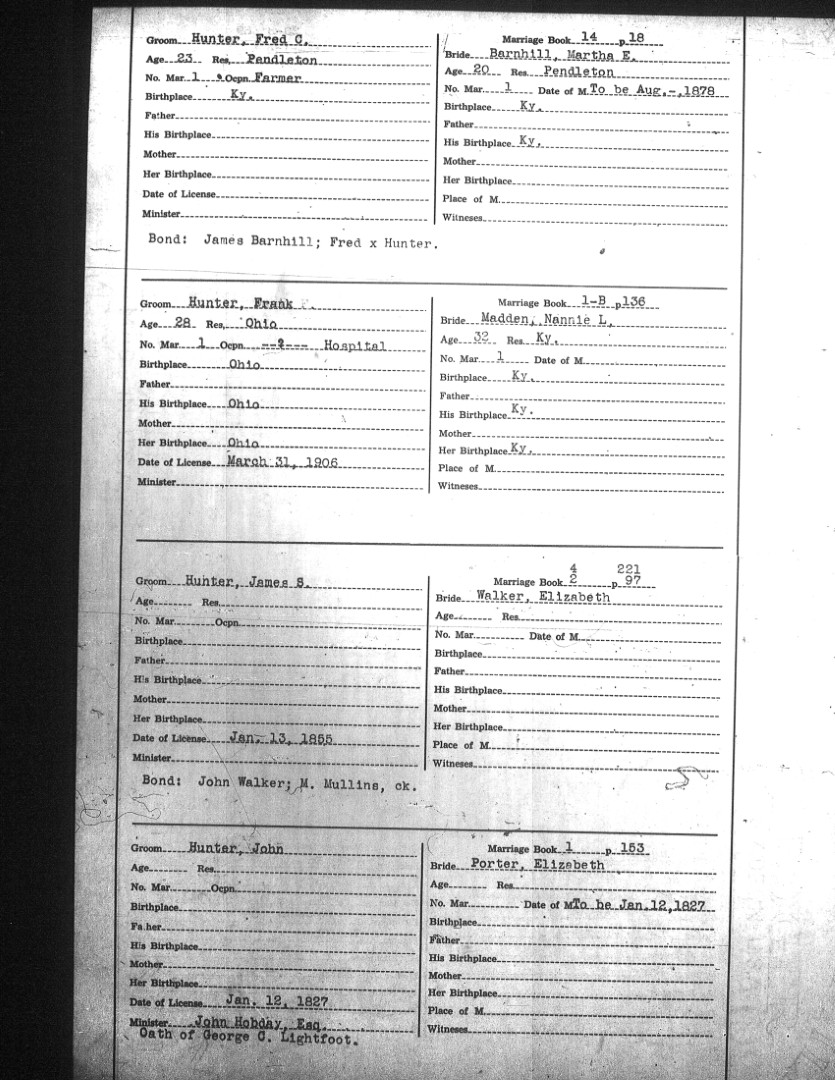 Groom Hunter, Fred C.
Age 23 Res. Pendleton
No. Mar. 1 Ocpn. Farmer
Birthplace Ky.
Father
His Birthplace
Mother
Her Birthplace
Date of License
Minister
Marriage Book 14 p. 18
Bride Barnhill, Martha E.
Age 20 Res. Pendleton
No. Mar. 1 Date of M. To be Aug.-, 1878
Birthplace Ky.
Father
His Birthplace Ky.
Mother
Her Birthplace
Place of M.
Witneses
Bond: James Barnhill; Fred x Hunter.
Groom Hunter, Frank
Age 28 Res. Ohio
No. Mar. 1 Ocpn. --?--- Hospital
Birthplace Ohio
Father
His Birthplace Ohio
Mother
Her Birthplace Ohio
Date of License March 31, 1906
Minister
Marriage Book 1-B p. 136
Bride Madden, Nannie L.
Age 32 Res. Ky.
No. Mar. 1 Date of M.
Birthplace Ky.
Father
His Birthplace Ky.
Mother
Her Birthplace Ky.
Place of M.
Witneses
Groom Hunter, James S.
Age Res.
No. Mar. Ocpn.
Birthplace
Father
His Birthplace
Mother
Her Birthplace
Date of License Jan. 13, 1855
Minister
4 221
Marriage Book 2 p. 97
Bride Walker, Elizabeth
Age Res.
No. Mar. Date of M.
Birthplace
Father
His Birthplace
Mother
Her Birthplace
Place of M.
Witneses
Bond: John Walker; M. Mullins, ck.
Groom Hunter, John
Age Res.
No. Mar. Ocpn.
Birthplace
Father
His Birthplace
Mother
Her Birthplace
Date of License Jan. 12, 1827
Minister John Hobday, Esq.
Oath of George C. Lightfoot.
Marriage Book 1 p. 153
Bride Porter, Elizabeth
Age Res.
No. Mar. Date of M. To be Jan. 12, 1827
Birthplace
Father
His Birthplace
Mother
Her Birthplace
Place of M.
Witneses